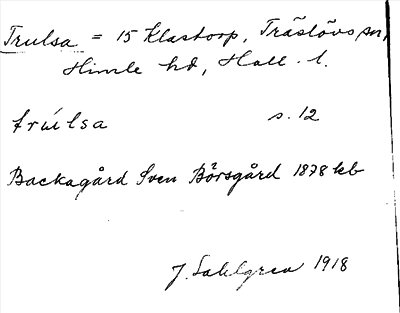 Trulsa = 15 Klastorp, Träslövs sn,
Himle hd, Hall. l.
trúlsa s. 12
Backagård Sven Börsgård 1878 kb
J. Sahlgren 1918